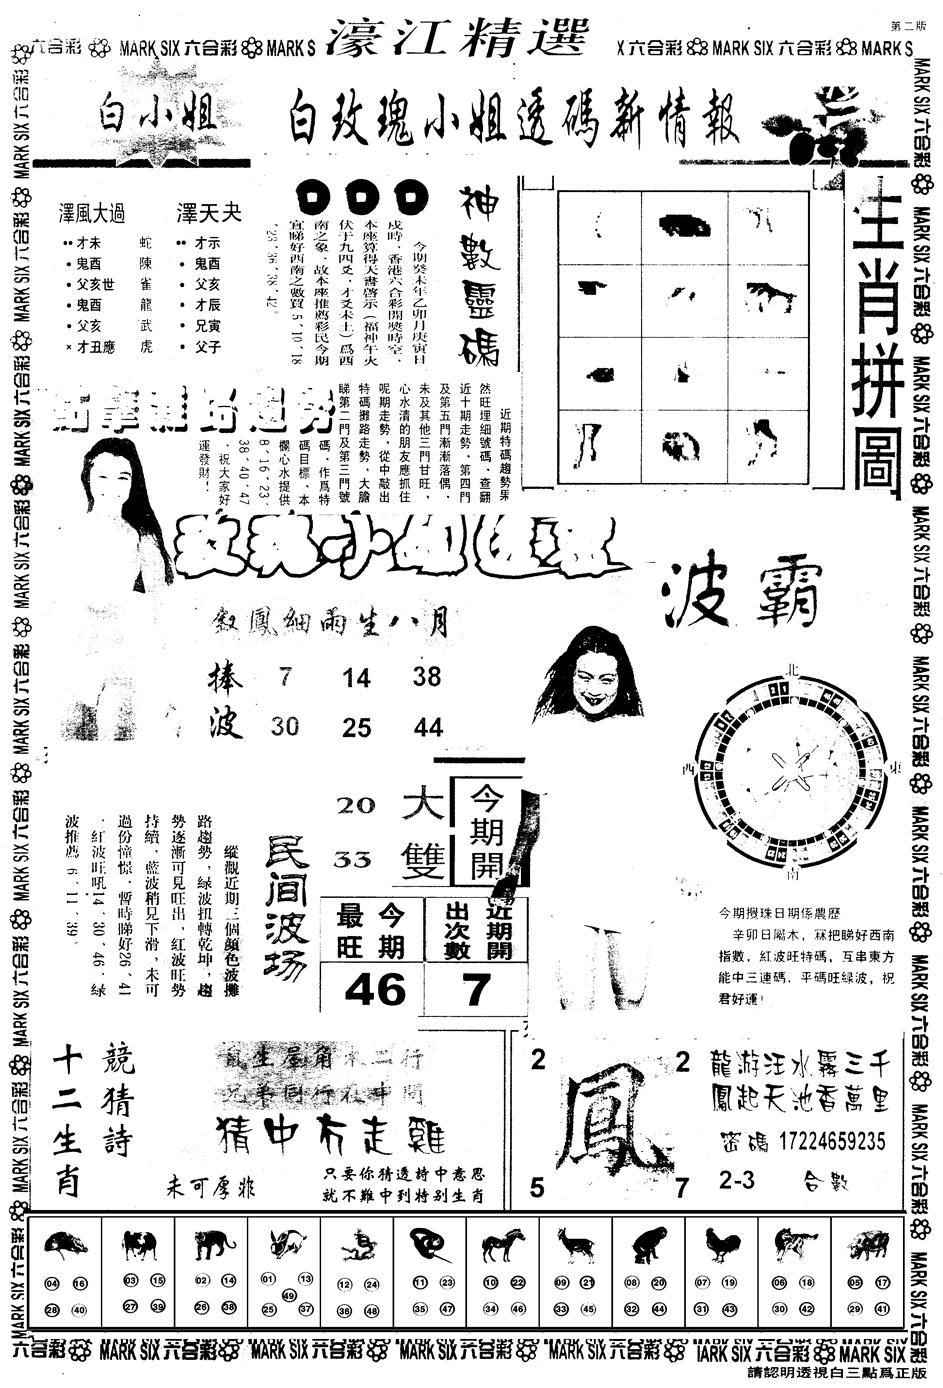 第二版
六合彩 MARK SIX 六合彩 MARK S
濠江精選
六合彩 MARK SIX 六合彩 MARK S
白小姐
白玫瑰小姐透碼新情報
澤風大過
澤天夬
才未 蛇
鬼酉 陳
父亥世 雀
鬼酉 龍
父亥 武
× 才丑應 虎
才示
鬼酉
父亥
才辰
兄寅
父子
神數靈碼
今期癸未年乙卯月庚寅日
戌時﹐香港六合彩開獎時空﹐
本座算得天書啓示（福神午火
伏于九四爻﹐才爻未土）爲西
南之象﹐故本座推薦彩民今期
宜睇好西南之數買5﹑10﹑18
﹑23﹑36﹑38﹑42。
生肖拼圖
近期特碼趨勢果
然旺埋細號碼﹐查翻
近十期走勢﹐第四門
及第五門漸漸落偶﹐
未及其他三門甘旺﹐
心水清的朋友應抓住
呢期走勢﹐從中敲出
特碼攤路走勢﹐大膽
睇第二門及第三門號
碼﹐作爲特
碼目標﹐本
欄心水提供
8﹑16﹑23﹑
38﹑40﹑47
﹐祝大家好
運發財！
波霸
叙鳳細雨生八月
捧 7 14 38
波 30 25 44
北
東
南
西
20 大
33 雙
今期開
民间波场
縱觀近期三個顔色波攤
路趨勢﹐绿波扭轉乾坤﹐趨
勢逐漸可見旺出﹐紅波旺勢
持續﹐藍波稍見下滑﹐未可
過份憧憬﹐暫時睇好26﹑41
﹐紅波旺吼14﹑30﹑46﹐绿
波推薦6﹑11﹑39。
今期最旺
46
近期開出次數
7
今期攪珠日期係農歷
辛卯日屬木，冧把睇好西南
指數，紅波旺特碼，互串東方
能中三連碼，平碼旺绿波，祝
君好運！
十二生肖
競猜詩
猜中冇走雞
未可厚非
只要你猜透詩中意思
就不難中到特别生肖
2 2
鳳
5 7
龍游汪水霧三千
鳳起天池香萬里
密碼 17224659235
2-3 合數
04 16 28 40
03 15 27 39
02 14 26 38
01 13 49 25 37
12 24 36 48
11 23 35 47
10 22 34 46
09 21 33 45
08 20 32 44
07 19 31 43
06 18 30 42
05 17 29 41
六合彩 MARK SIX 六合彩 MARK SIX 六合彩 MARK SIX 六合彩 MARK SIX 六合彩 IARK SIX 六合彩 MARK SIX
請認明透視白三點爲正版